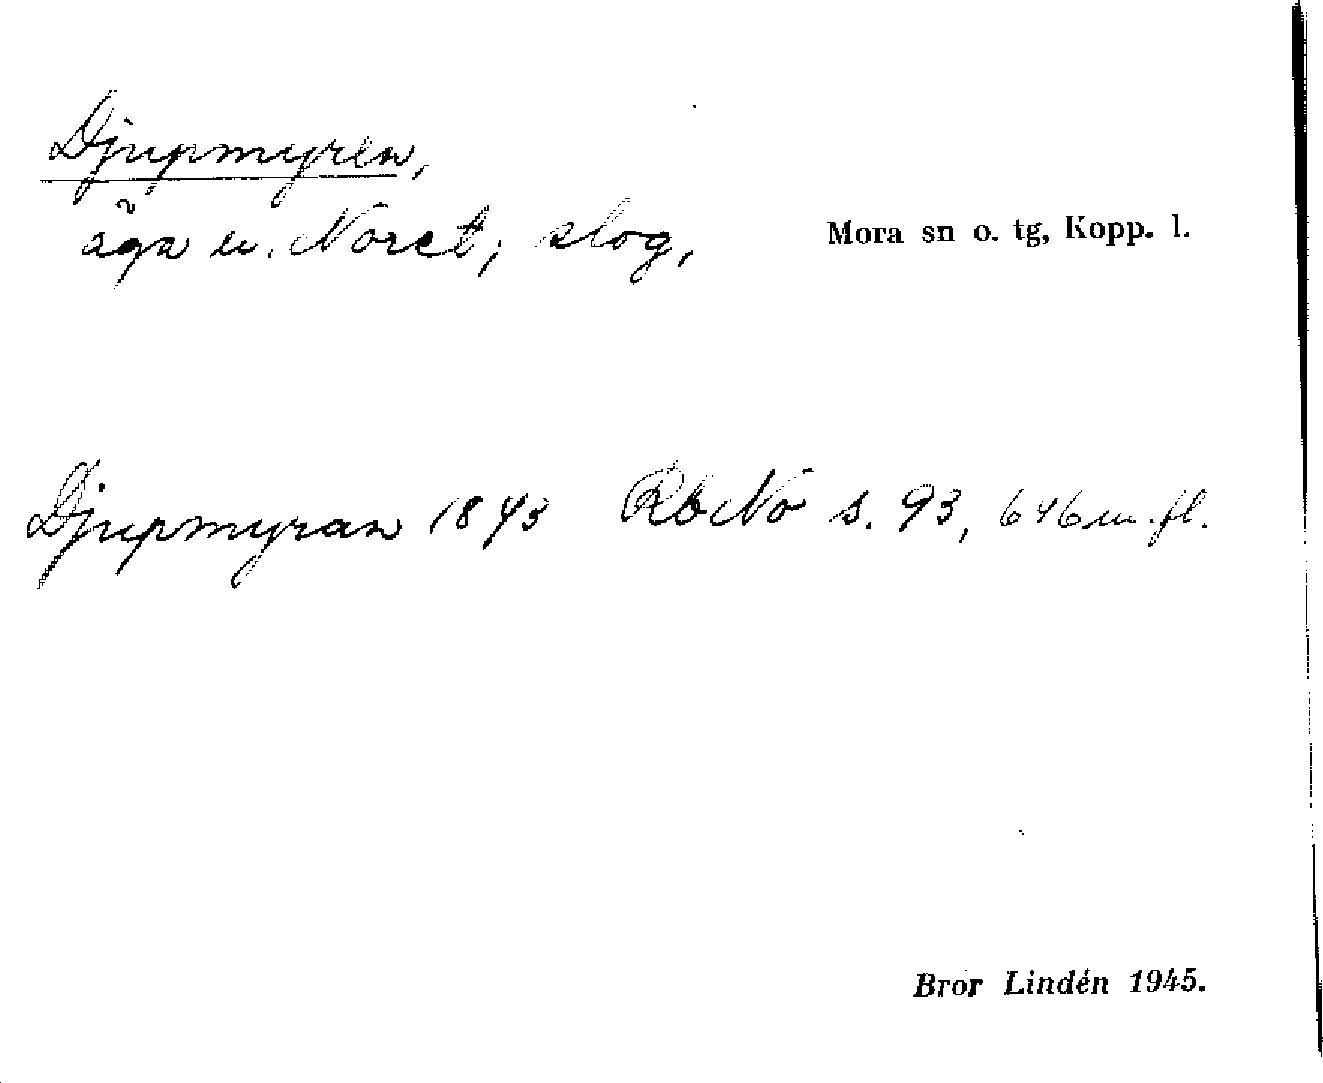 Djupmyren,
äga u. Noret; slog,
Mora sn o. tg, Kopp. l.
Djupmyran 1843 RbNo s. 93, 646 m. fl.
Bror Lindén 1945.